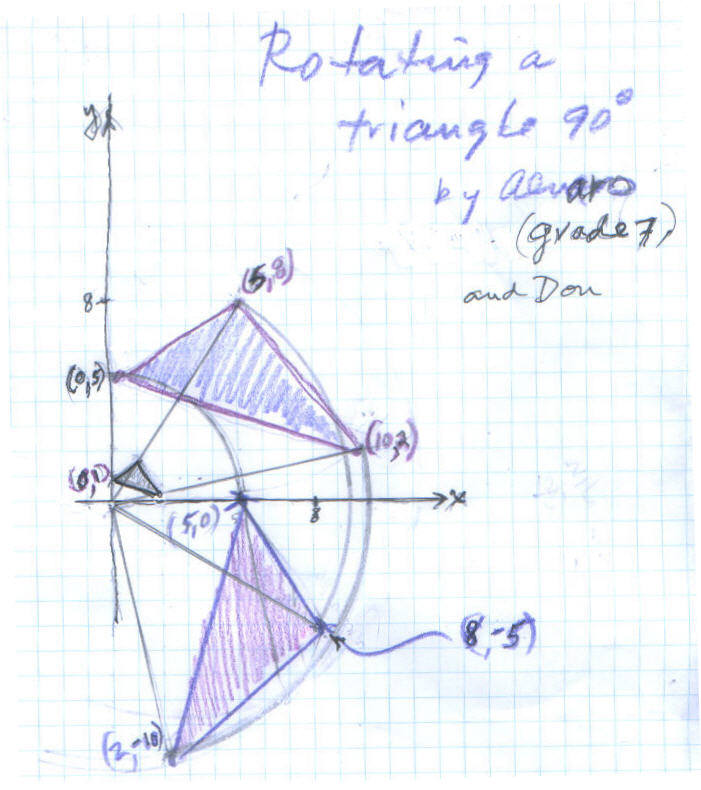 Rotating a
triangle 90°
by Alvaro
(grade 7)
and Don
y
(5,8)
8
(0,5)
(10,2)
(0,1)
x
(5,0)
8
(8,-5)
(2,-10)